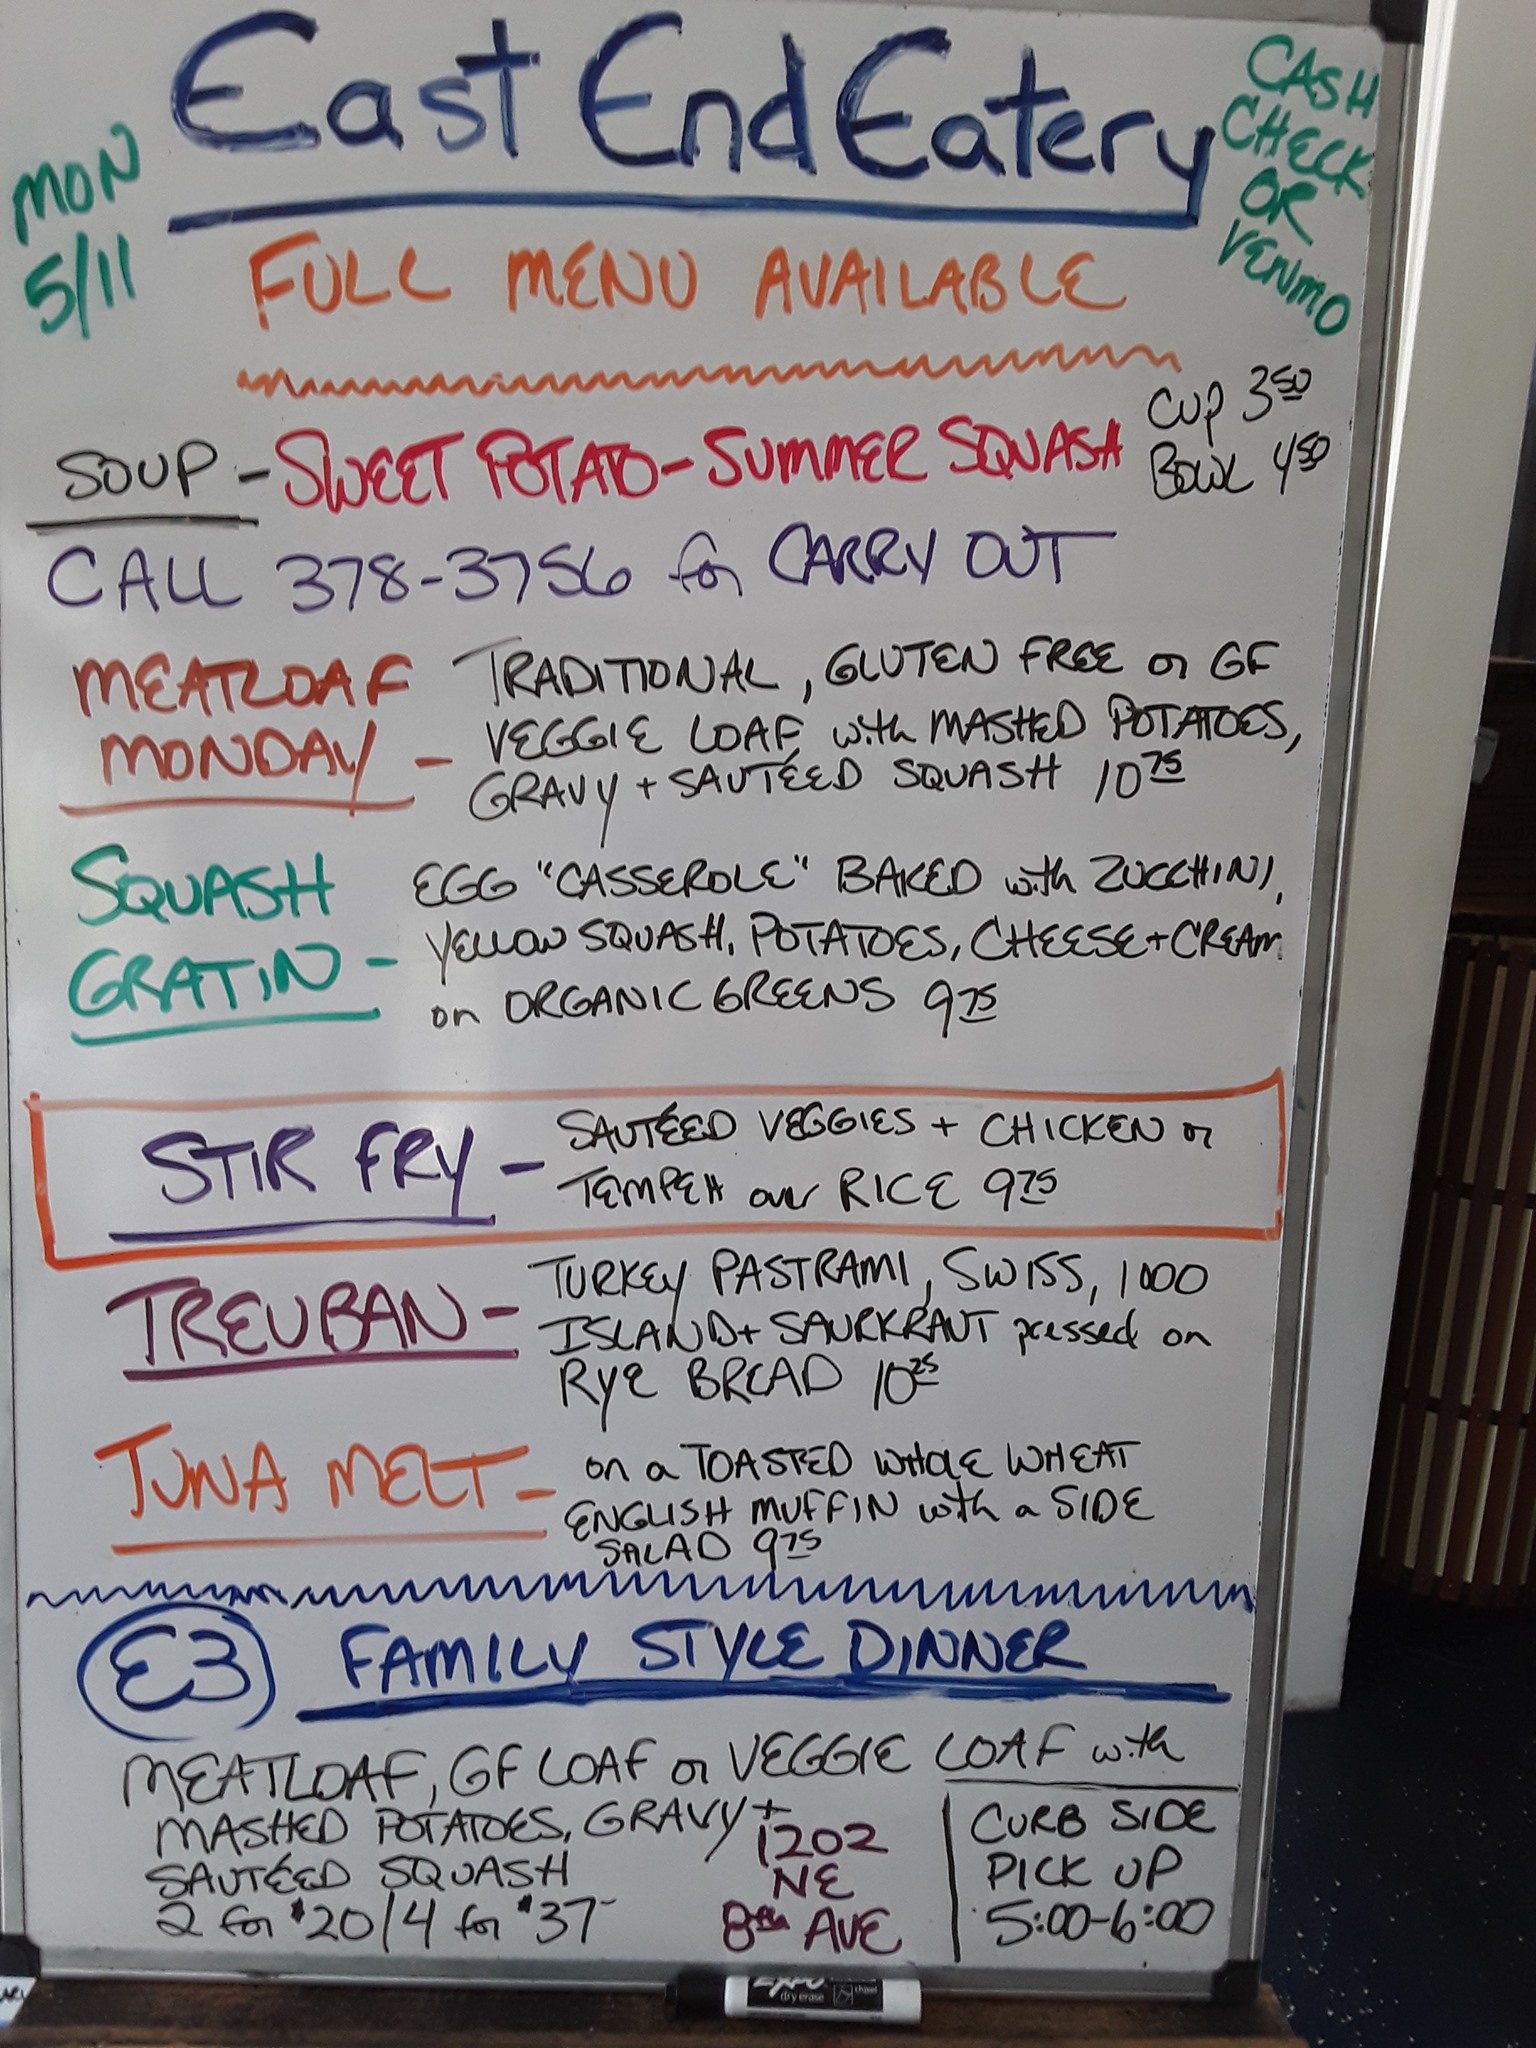 East End Eatery
MON
5/11
CASH
CHECK
OR
VENMO
FULL MENU AVAILABLE
SOUP - SWEET POTATO - SUMMER SQUASH
CUP 3 50
BOWL 4 50
CALL 378-3756 for CARRY OUT
MEATLOAF
MONDAY -
TRADITIONAL, GLUTEN FREE or GF
VEGGIE LOAF with MASHED POTATOES,
GRAVY + SAUTÉED SQUASH 10 75
SQUASH
GRATIN -
EGG "CASSEROLE" BAKED with ZUCCHINI,
YELLOW SQUASH, POTATOES, CHEESE + CREAM
on ORGANIC GREENS 9 75
STIR FRY -
SAUTÉED VEGGIES + CHICKEN or
TEMPEH over RICE 9 75
TREUBAN -
TURKEY PASTRAMI, SWISS, 1000
ISLAND + SAURKRAUT pressed on
RYE BREAD 10 25
TUNA MELT -
on a TOASTED WHOLE WHEAT
ENGLISH MUFFIN with a SIDE
SALAD 9 75
E3 FAMILY STYLE DINNER
MEATLOAF, GF LOAF or VEGGIE LOAF with
MASHED POTATOES, GRAVY +
SAUTÉED SQUASH
2 for $20/4 for $37-
1202
NE
8th AVE
CURB SIDE
PICK UP
5:00-6:00
EXPO
dry erase
chisel